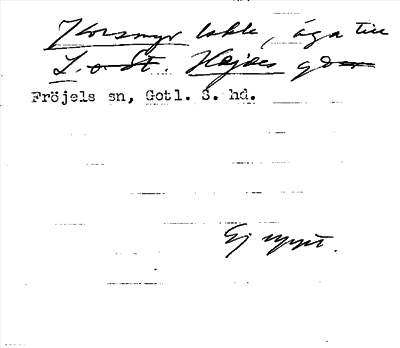 Korsmyr lokl, äga till
L. o. St. Hajdes gd
Fröjels sn, Gotl. S. hd.
Ej uppt.